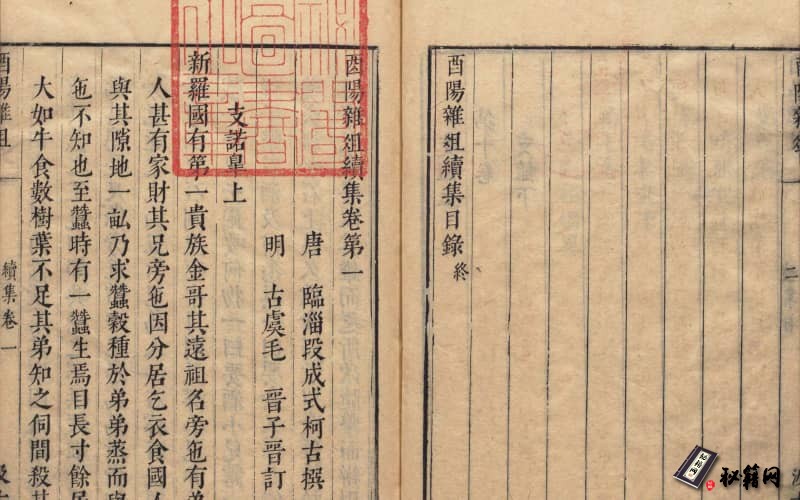 酉陽雜俎續集目錄終
酉陽雜俎續集卷第一
唐 臨淄段成式柯古撰
明 古虞毛 晉子晉訂
支諾皐上
新羅國有第一貴族金哥其遠祖名旁㐌有弟
人甚有家財其兄旁㐌因分居乞衣食國人
與其隙地一畝乃求蠶穀種於弟弟蒸而與
㐌不知也至蠶時有一蠶生焉目長寸餘居
大如牛食數樹葉不足其弟知之伺間殺其
酉陽雜俎
續集卷一
秘籍网